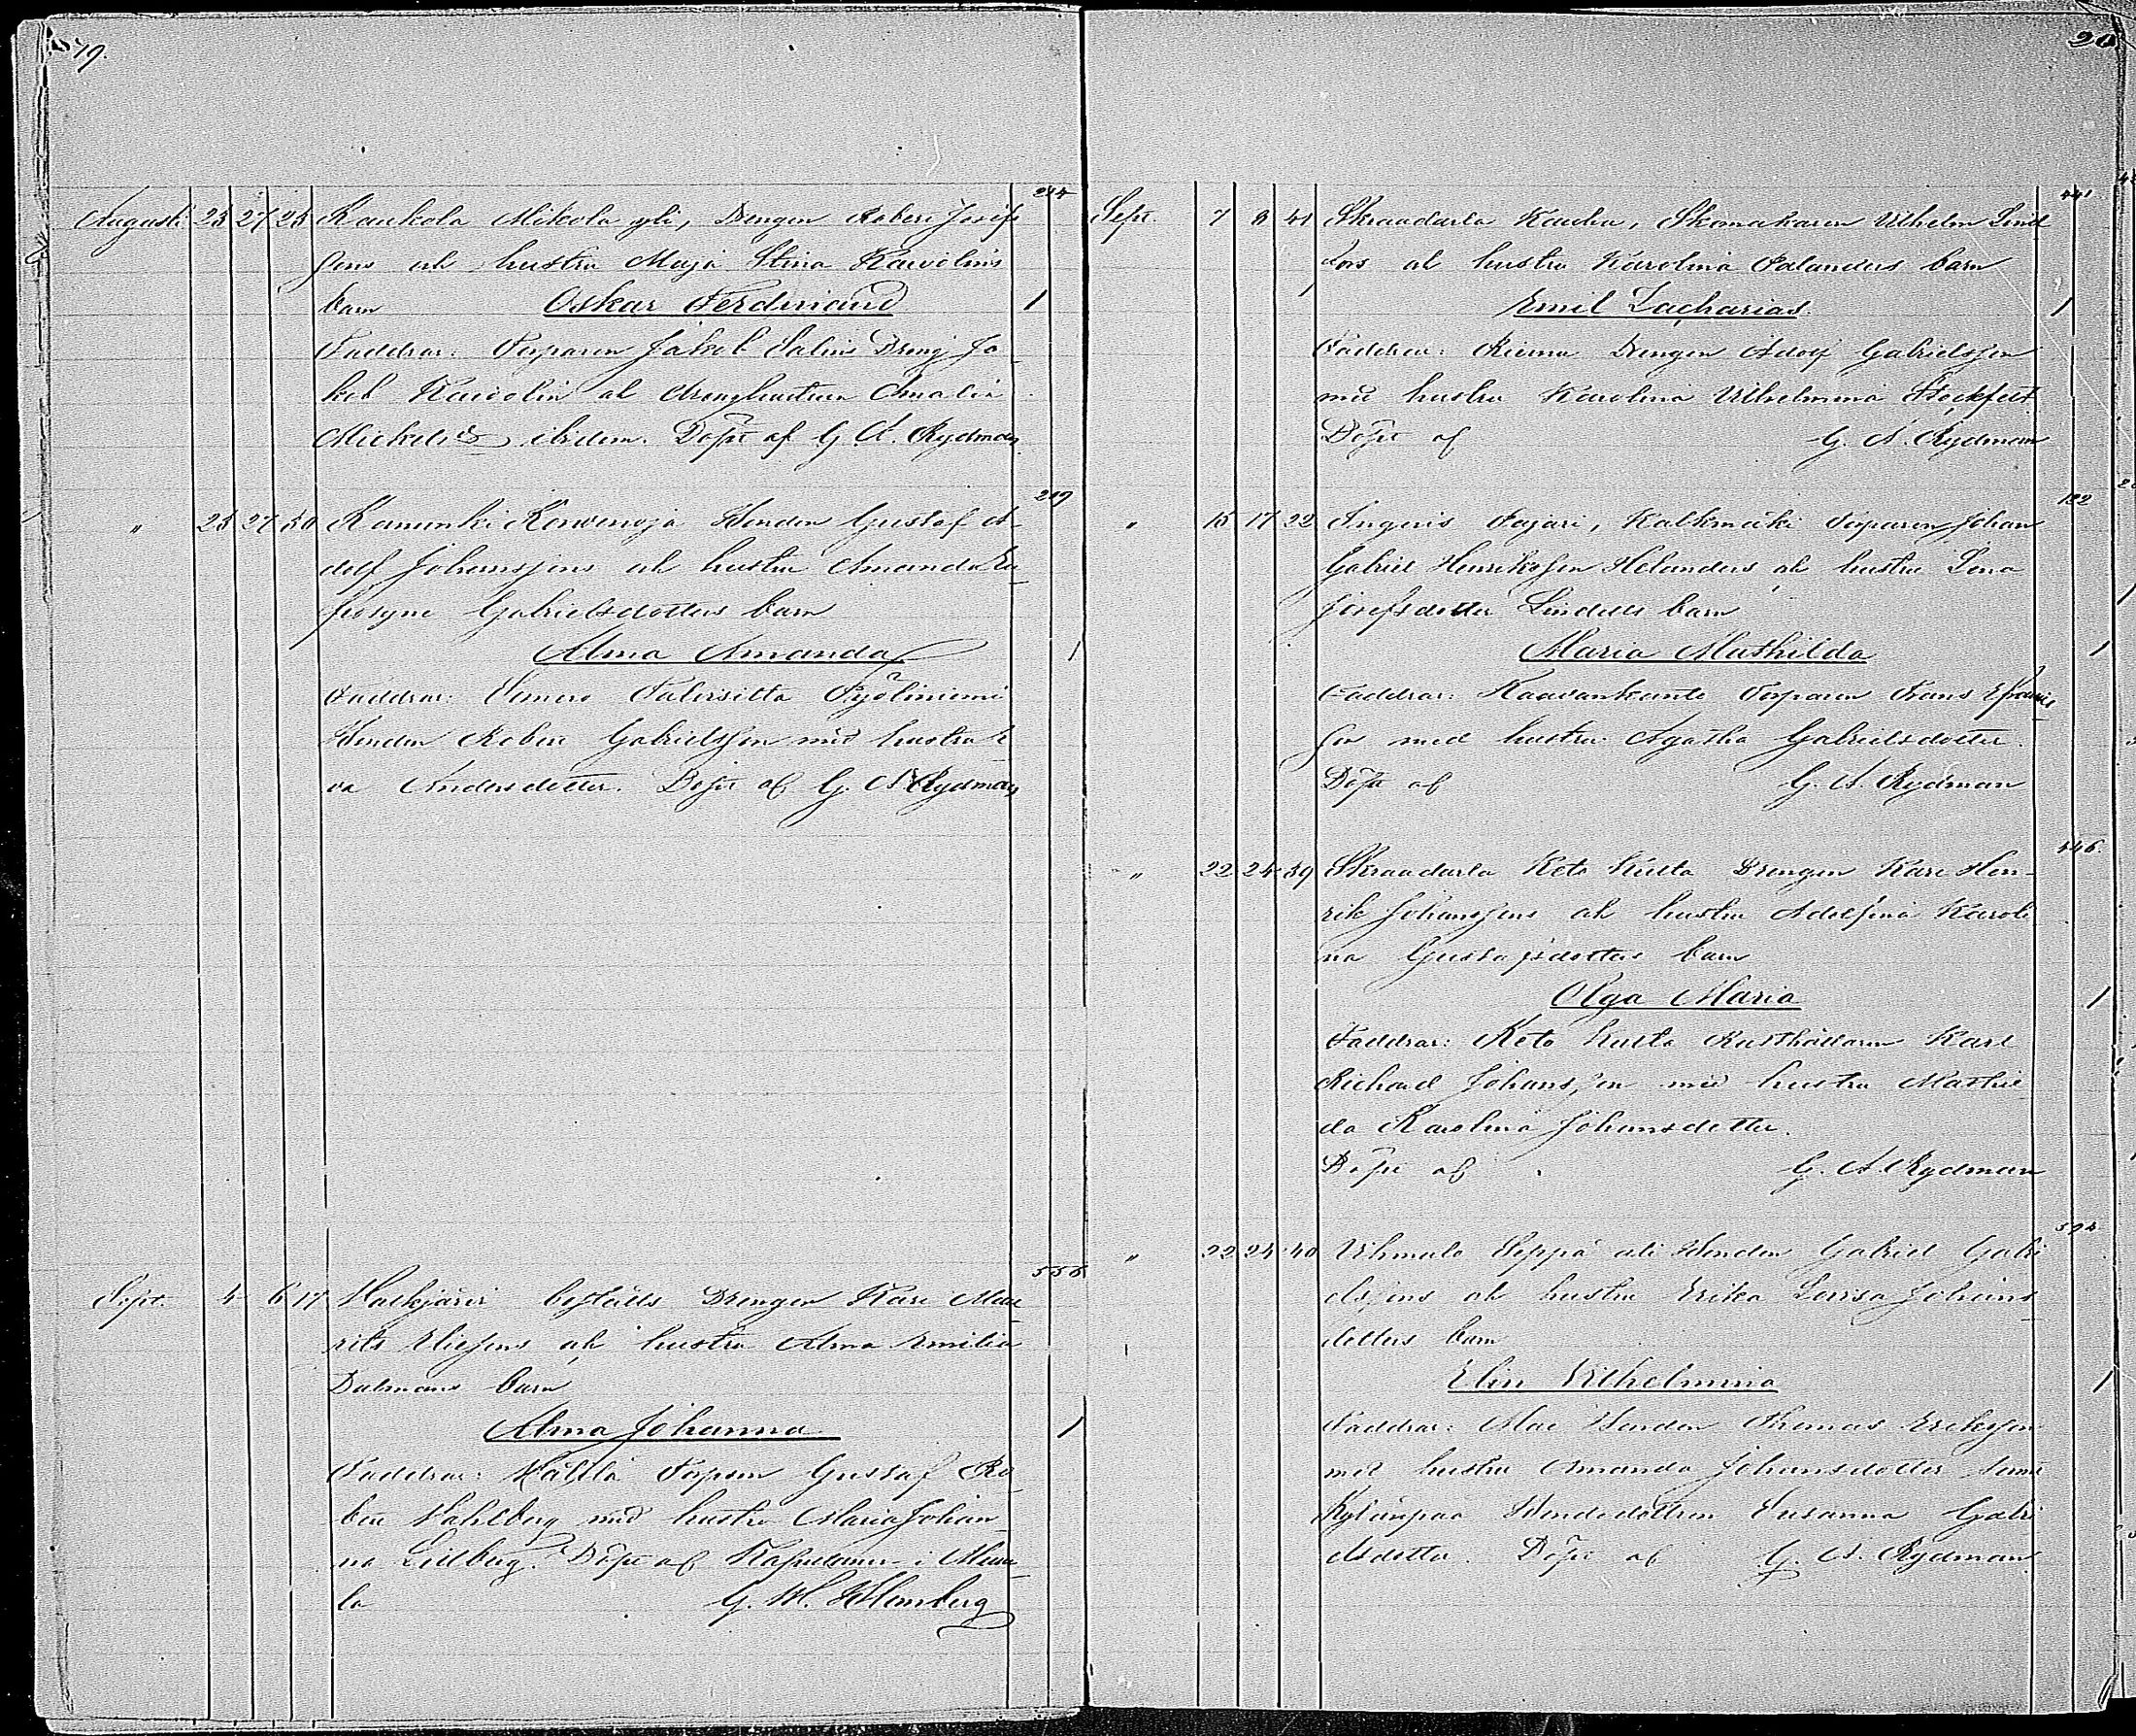 19.
214
Augusti 25 27 25 Kankola Mikola yli, Drengen Robert Josefs
sons ah hustru Maja Stina Karolins
barn Oskar Ferdinand 1
Faddrar: Torparen Jakob Salin Dreng Ja
kob Karolin ah drenghustrun Amalia
Mickelsd ibidem. Döpt af G. A. Rydman
219
" 25 27 30 Kanunki Gustaf A-
dolf Johanssons ah hustru Amanda Eu
frosyne Gabrielsdotters barn
Alma Amanda 1
Faddrar:
Robert Gabrielsson med hustru E
va Andersdotter. Döpt af G. A. Rydman
556
Sept. 4 6 17 Halkjärvi Drengen Karl Mau
rits Eliesons ah hustru Alma Emilia
Dalmans barn
Alma Johanna 1
Faddrar: Gustaf Ro
bert Vahlberg med hustru Maria Johan
na Lillberg. Döpt af Kapellanen i
la G. W. Holmberg
20
441
Sept. 7 8 41 Skraadarla Kauha, Skomakaren Vilhelm Lind
fors ah hustru Karolina Palanders barn
Emil Zacharias. 1
Faddrar: Drengen Adolf Gabrielsson
med hustru Karolina Vilhelmina Stockfelt
Döpt af G. A. Rydman
122
" 15 17 22 Ingeris Pajari, Kalkmäki Torparen Johan
Gabriel Henriksson Helanders ah hustru Lena
Josefsdotter Lindells barn
Maria Mathilda 1
Faddrar: Torparen Frans Efraims
son med hustru Agatha Gabrielsdotter.
Döpt af G. A. Rydman
446.
" 22 24 39 Skraadarla Keto Kusta Drengen Karl Hen-
rik Johanssons ah hustru Adolfina Karoli
na Gustafsdotters barn
Olga Maria 1
Faddrar: Keto Kusta Rusthållaren Karl
Richard Johansson med hustru Mathil
da Karolina Johansdotter.
Döpt af G. A. Rydman
" 22 24 40 Seppä ali Gabriel Gabri
elssons ah hustru Erika Lovisa Johans
dotters barn
Elin Vilhelmina 1
Faddrar: Thomas Eriksson
med hustru Amanda Johansdotter samt
Kylänpää Susanna Gabri
elsdotter. Döpt af G. A. Rydman